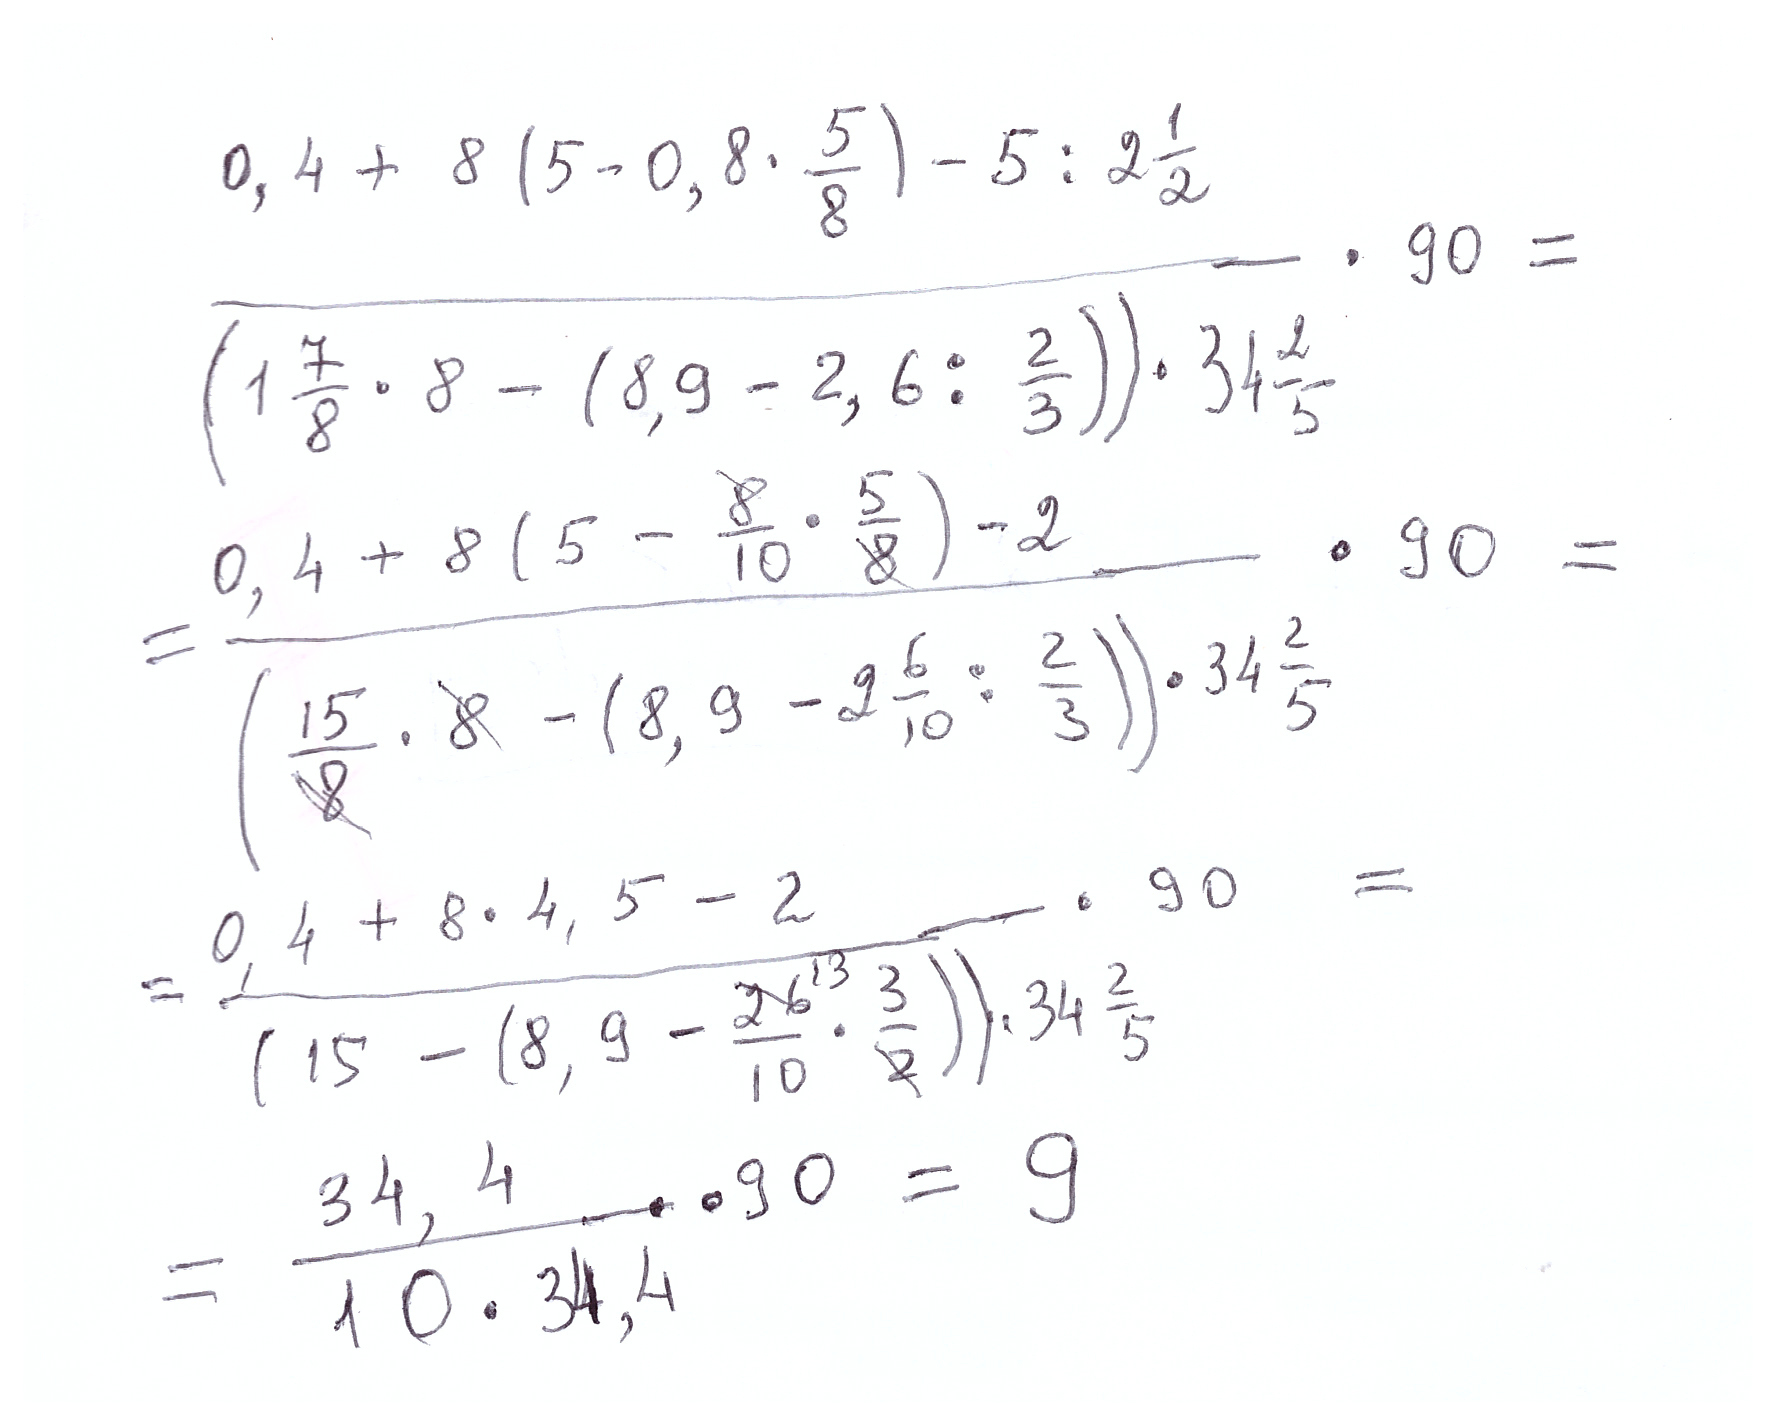 0,4 + 8 (5 - 0,8 · 5/8) - 5 : 2 1/2
· 90 =
(1 7/8 · 8 - (8,9 - 2,6 : 2/3)) · 34 2/5
0,4 + 8 (5 - 8/10 · 5/8) - 2
= · 90 =
(15/8 · 8 - (8,9 - 2 6/10 : 2/3)) · 34 2/5
0,4 + 8 · 4,5 - 2
= · 90 =
(15 - (8,9 - 26/10 13 · 3/2)) · 34 2/5
34,4
= · · 90 = 9
10 · 34,4